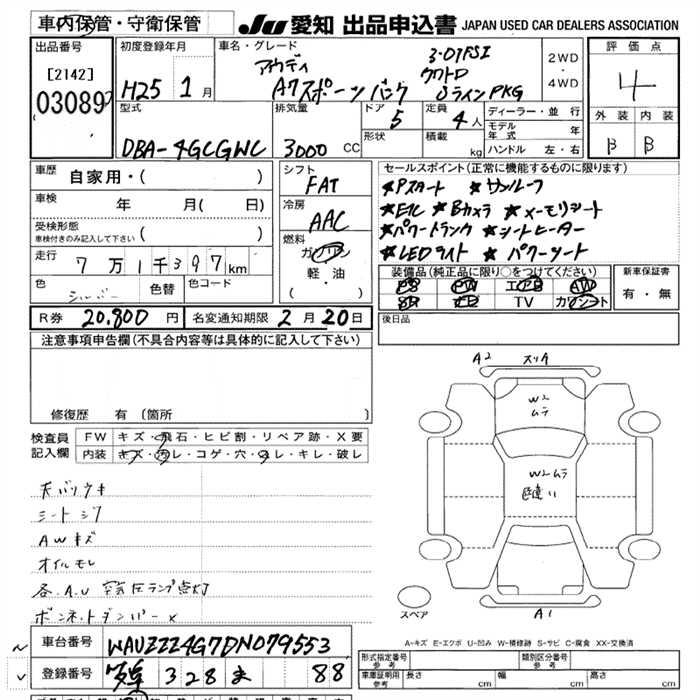 車内保管・守衛保管
JU 愛知 出品申込書 JAPAN USED CAR DEALERS ASSOCIATION
出品番号
[2142]
03089
初度登録年月
H25 1月
車名・グレード
アウディ
A7スポーツバック
3.0TFSI
クワトロ
SラインPKG
2WD
・
4WD
評価点
4
外装 内装
B B
型式
DBA-4GCGWC
排気量
3000 CC
ドア
5
形状
定員
4人
積載
kg
ディーラー・並行
モデル年式 年
ハンドル 左・右
車歴
自家用・( )
車検
年 月( 日)
受検形態
車検付きのみ記入して下さい ( )
走行
7万1千397km
色
シルバー
色替
色コード
シフト
FAT
冷房
AAC
燃料
ガソリン
軽・油
( ・ )
セールスポイント(正常に機能するものに限ります)
★Pスタート ★サンルーフ
★ETC ★Bカメラ ★メモリシート
★パワートランク ★シートヒーター
★LEDライト ★パワーシート
装備品(純正品に限り○をつけてください)
PS PW エアB AW
SR CD TV カワシート
新車保証書
有・無
後日品
R券 20,800円
名変通知期限 2月20日
注意事項申告欄(不具合内容等は具体的に記入して下さい)
修復歴 有(箇所 )
検査員記入欄
FW キズ・飛石・ヒビ割・リペア跡・X要
内装 キズ・汚レ・コゲ・穴・スレ・キレ・破レ
天バリウキ
シートシワ
AWキズ
オイルモレ
各.A.W 空気圧ランプ点灯
ボンネットダンパーX
A2 スリA
W2
ムラ
W2ムラ
色違い
A1
スペア
A-キズ E-エクボ U-凹み W-補修跡 S-サビ C-腐食 XX-交換済
車台番号 WAUZZZ4G7DN079553
登録番号 328 ま 88
型式指定番号
参考
類別区分番号
参考
車庫証明用
参考
長さ cm
幅 cm
高さ cm